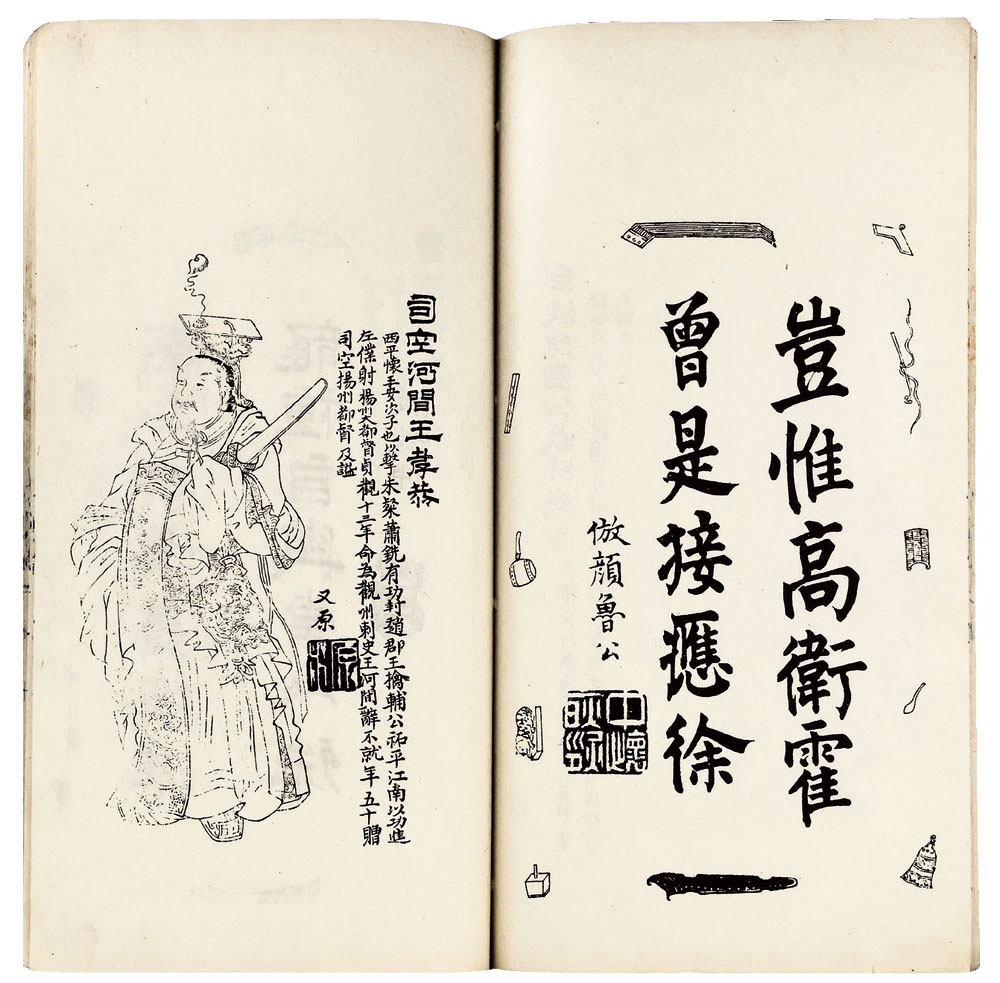 豈惟高衛霍
曾是接應徐
倣顔魯公
司空河間王孝恭
西平懷王安次子也以擊朱粲蕭銑有功封趙郡王擒輔公祏平江南以功進
左僕射楊州大都督貞觀十三年命為觀州刺史王河間辭不就年五十贈
司空揚州都督及謚
又原